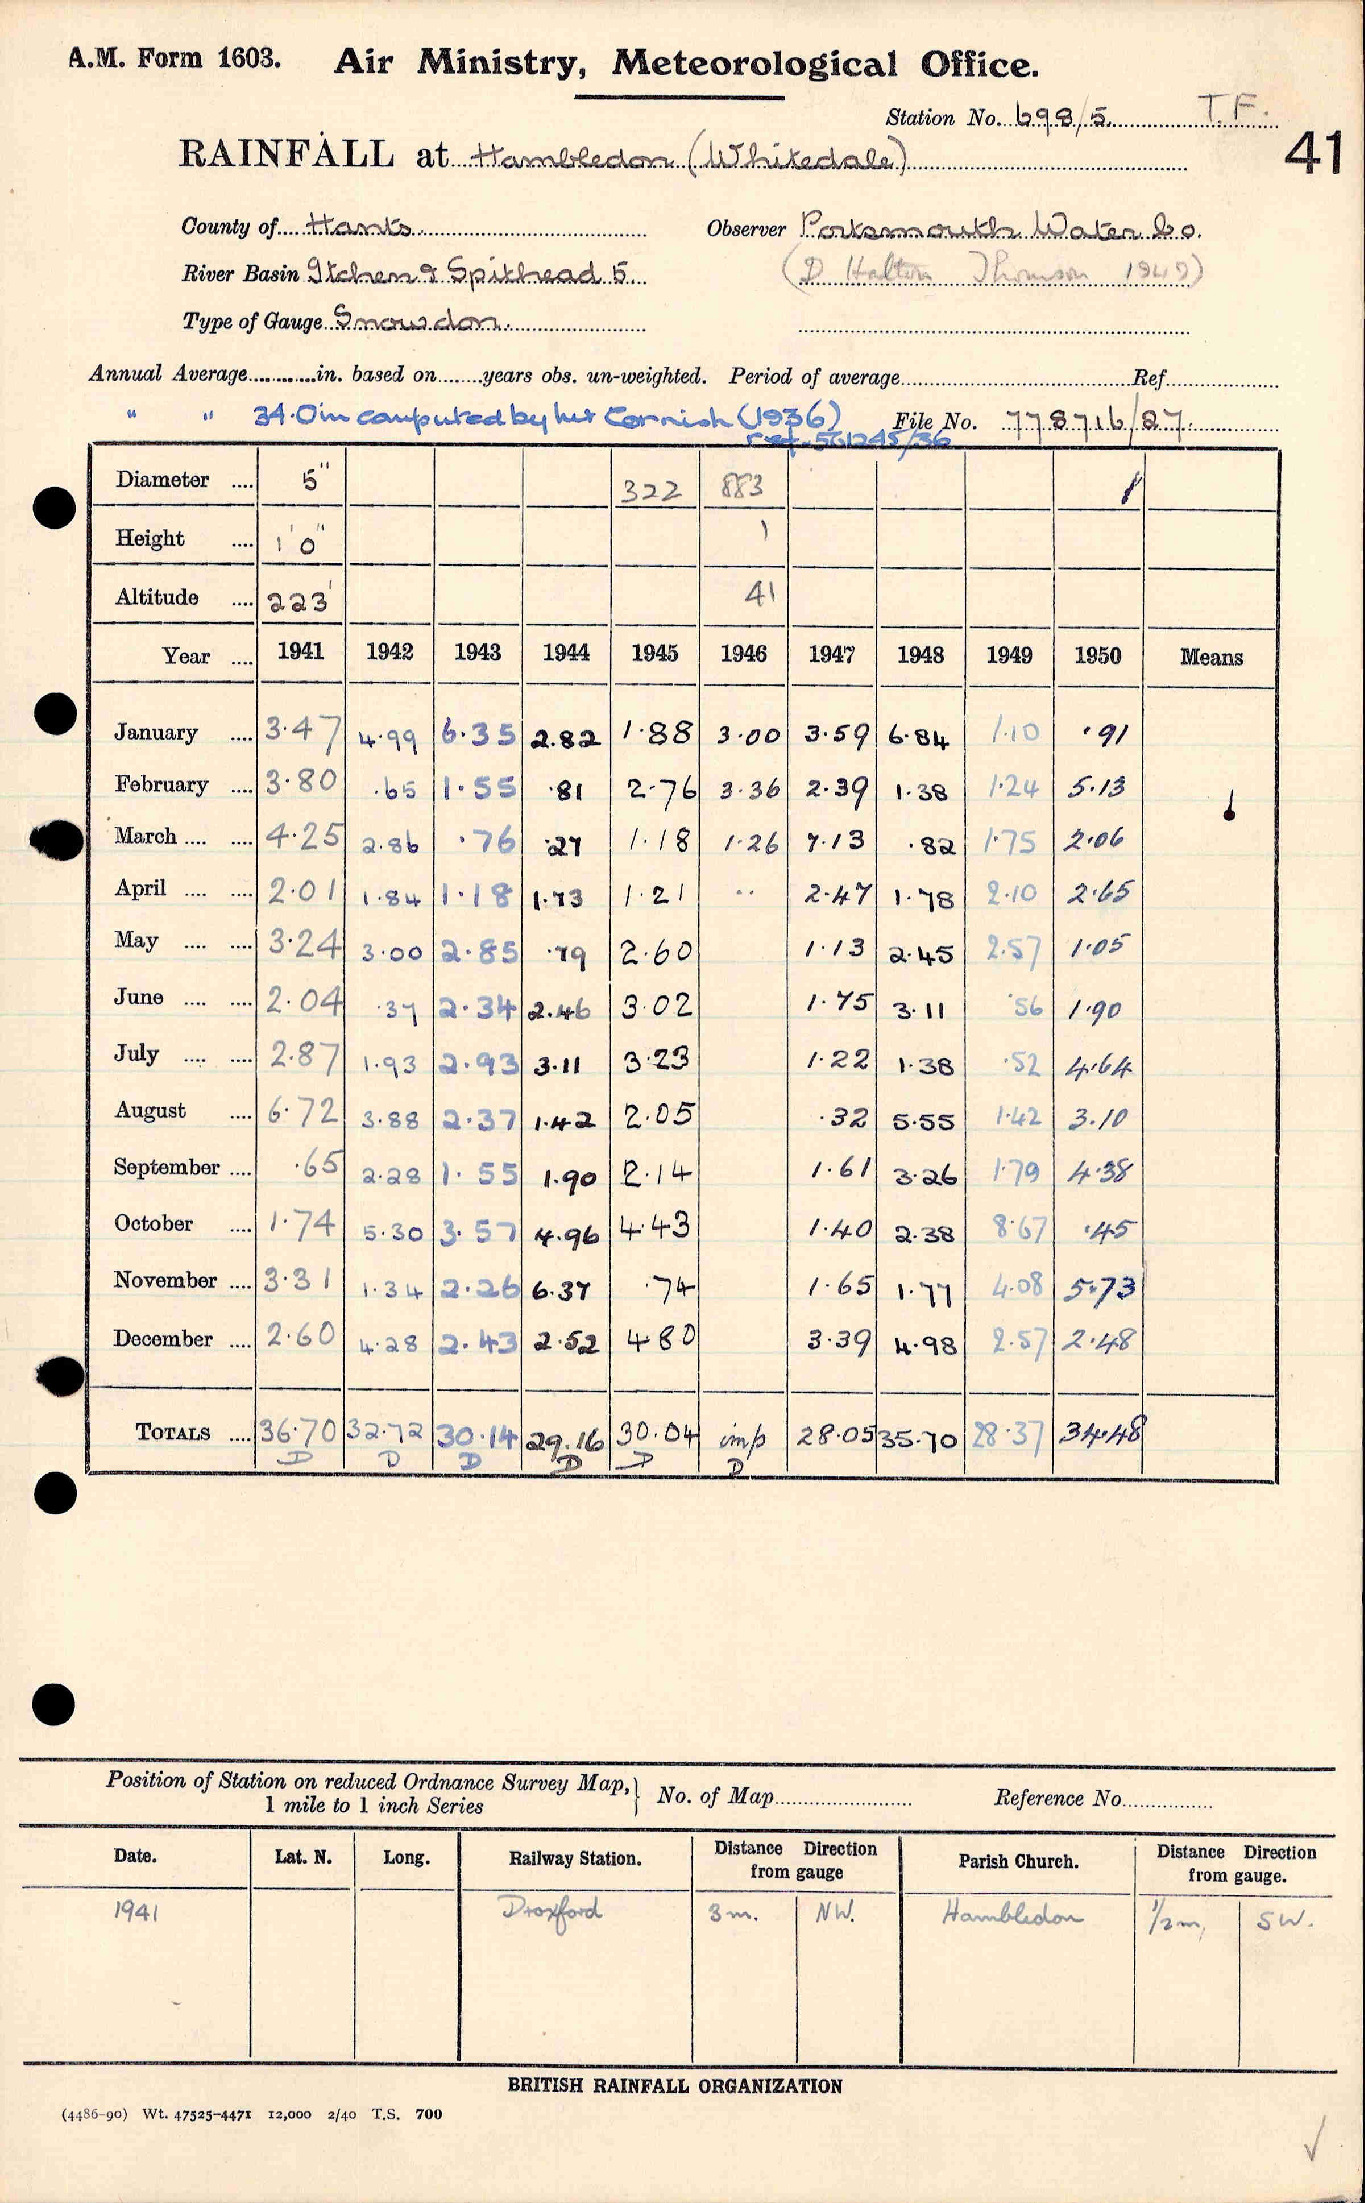 A.M. Form 1603. Air Ministry, Meteorological Office.
Station No. 698/5. T.F.
41
RAINFALL at Hambledon (Whitedale)
County of Hants Observer Portsmouth Water Co.
River Basin Itchen & Spithead 5. (D Halton Thomson 1949)
Type of Gauge Snowdon.
Annual Average............in. based on........years obs. un-weighted. Period of average............ Ref............
" " 34.0in computed by Cornish (1936) File No. 778716/27.
ref. 561245/36
Diameter .... 5" 322 883
Height .... 1' 0" 1
Altitude .... 223' 41
Year .... 1941 1942 1943 1944 1945 1946 1947 1948 1949 1950 Means
January .... 3.47 4.99 6.35 2.82 1.88 3.00 3.59 6.84 1.10 .91
February .... 3.80 .65 1.55 .81 2.76 3.36 2.39 1.38 1.24 5.13
March .... .... 4.25 2.86 .76 .27 1.18 1.26 7.13 .82 1.75 2.06
April .... .... 2.01 1.84 1.18 1.73 1.21 .. 2.47 1.78 2.10 2.65
May .... .... 3.24 3.00 2.85 .79 2.60 1.13 2.45 2.57 1.05
June .... .... 2.04 .37 2.34 2.46 3.02 1.75 3.11 .56 1.90
July .... .... 2.87 1.93 2.93 3.11 3.23 1.22 1.38 .52 4.64
August .... 6.72 3.88 2.37 1.42 2.05 .32 5.55 1.42 3.10
September .... .65 2.28 1.55 1.90 2.14 1.61 3.26 1.79 4.38
October .... 1.74 5.30 3.57 4.96 4.43 1.40 2.38 8.67 .45
November .... 3.31 1.34 2.26 6.37 .74 1.65 1.77 4.08 5.73
December .... 2.60 4.28 2.43 2.52 4.80 3.39 4.98 2.57 2.48
TOTALS .... 36.70 32.72 30.14 29.16 30.04 imp 28.05 35.70 28.37 34.48
D D D D D D
Position of Station on reduced Ordnance Survey Map, No. of Map............ Reference No............
1 mile to 1 inch Series
Date. Lat. N. Long. Railway Station. Distance Direction from gauge Parish Church. Distance Direction from gauge.
1941 Droxford 3m. NW. Hambledon 1/2m, SW.
BRITISH RAINFALL ORGANIZATION
(4486-90) Wt. 47525-4471 12,000 2/40 T.S. 700